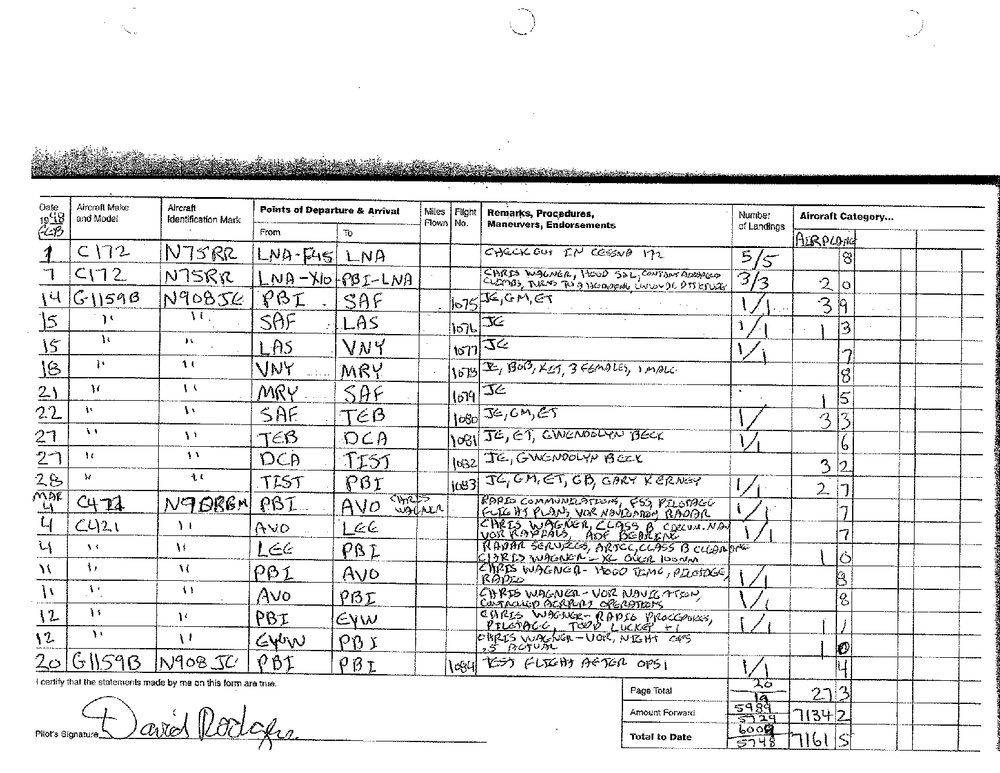 Date 1998 Aircraft Make and Model Aircraft Identification Mark Points of Departure & Arrival Miles Flown Flight No. Remarks, Procedures, Maneuvers, Endorsements Number of Landings Aircraft Category...
FEB From To AIRPLANE
1 C172 N75RR LNA-F45 LNA CHECKOUT IN CESSNA 172 5/5 8
7 C172 N75RR LNA-X10-PBI-LNA CHRIS WAGNER, 3/3 2 0
14 G1159B N908JE PBI SAF 1075 JE, GM, ET 1/1 3 9
15 " " SAF LAS 1076 JE 1/1 1 3
15 " " LAS VNY 1077 JE 1/1 7
18 " " VNY MRY 1078 JE, BOB, 3 FEMALES, 1 MALE 8
21 " " MRY SAF 1079 JE 1 5
22 " " SAF TEB 1080 JE, GM, ET 1/1 3 3
27 " " TEB DCA 1081 JE, ET, GWENDOLYN BECK 1/1 6
27 " " DCA TIST 1082 JE, GWENDOLYN BECK 3 2
28 " " TIST PBI 1083 JE, GM, ET, GB, GARY KERNEY 1/1 2 7
MAR 4 C421 PBI AVO CHRIS WAGNER RADIO COMMUNICATIONS, FSS, PILOTAGE FLIGHT PLANS, VOR NAVIGATION RADAR 7
4 C421 " AVO LEE CHRIS WAGNER, CLASS B NAV VOR ADF BEARING 1/1 7
4 " " LEE PBI RADAR SERVICES, ARTCC, CLASS B CLEARANCE CHRIS WAGNER - XC OVER 100NM 1 0
11 " " PBI AVO CHRIS WAGNER - HOOD TIME, PILOTAGE, RADIO 1/1 8
11 " " AVO PBI CHRIS WAGNER - VOR NAVIGATION, CONTROLLED AIRPORT OPERATIONS 1/1 8
12 " " PBI EYW CHRIS WAGNER - RADIO PROCEDURES, PILOTAGE, TODD +1 1/1 1 1
12 " " EYW PBI CHRIS WAGNER - VOR, NIGHT OPS .5 ACTUAL 1 0
20 G1159B N908JE PBI PBI 1084 TEST FLIGHT AFTER OPS1 1/1 4
I certify that the statements made by me on this form are true. Page Total 20/19 27 3
Amount Forward 5989/5729 7134 2
Pilot's Signature David Rodgers Total to Date 5748 7161 5